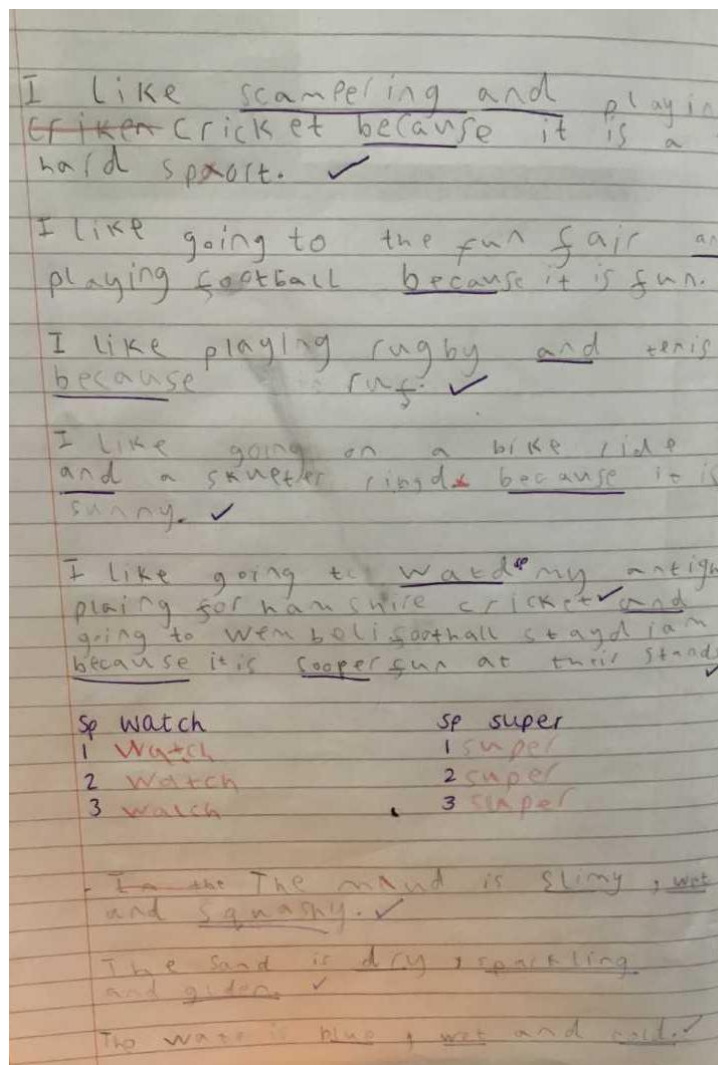 I like scampering and playin
criken cricket because it is a
hard sport.
I like going to the fun fair an
playing football because it is fun.
I like playing rugby and tenis
because ruf.
I like going on a bike ride
and a skueter because it is
sunny.
I like going to watd sp my
plaing for hamshire cricket and
going to wemboli football staydiam
because it is sooper fun at their stands
sp watch sp super
1 watch 1 super
2 watch 2 super
3 watch 3 super
In the The maud is slimy, wet
and squashy.
The sand is dry, sparkling
and golden.
The wate is blue, wet and cold.